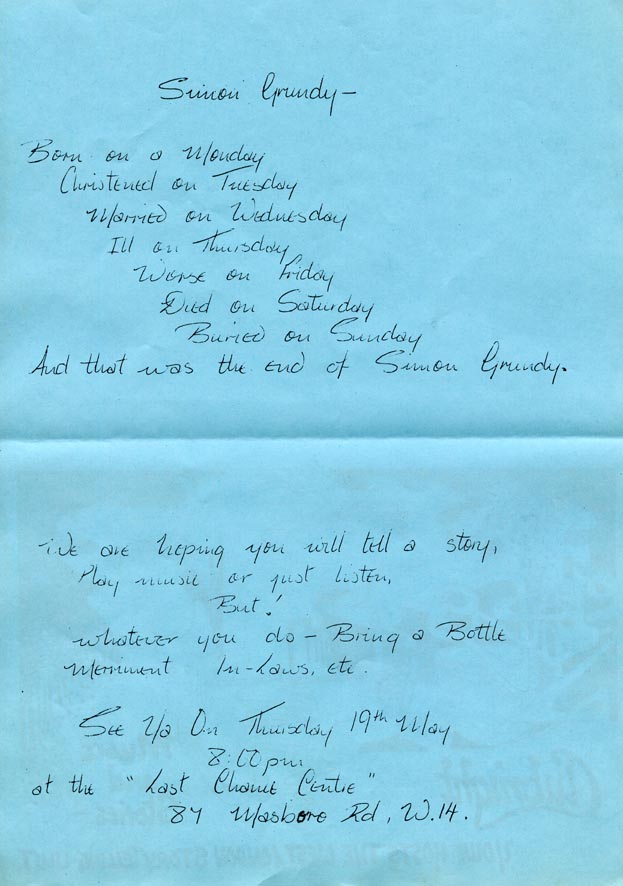 Simon Grundy –
Born on a Monday
Christened on Tuesday
Married on Wednesday
Ill on Thursday
Worse on Friday
Died on Saturday
Buried on Sunday
And that was the end of Simon Grundy.
We are hoping you will tell a story,
Play music or just listen,
But!
whatever you do – Bring a Bottle
Merriment In-Laws, etc.
See Ya On Thursday 19th May
8:00pm
at the "Last Chance Centre"
87 Masboro Rd, W.14.